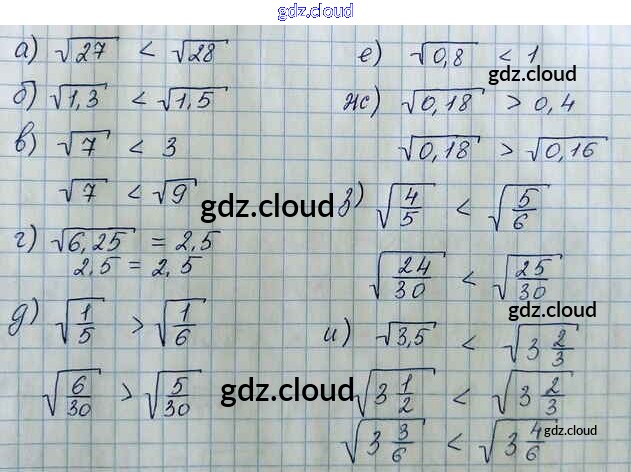 gdz.cloud
а) √27 < √28
б) √1,3 < √1,5
в) √7 < 3
√7 < √9
г) √6,25 = 2,5
2,5 = 2,5
д) √1/5 > √1/6
√6/30 > √5/30
е) √0,8 < 1
gdz.cloud
ж) √0,18 > 0,4
√0,18 > √0,16
gdz.cloud
з) √4/5 < √5/6
√24/30 < √25/30
gdz.cloud
и) √3,5 < √3 2/3
gdz.cloud
√3 1/2 < √3 2/3
√3 3/6 < √3 4/6
gdz.cloud